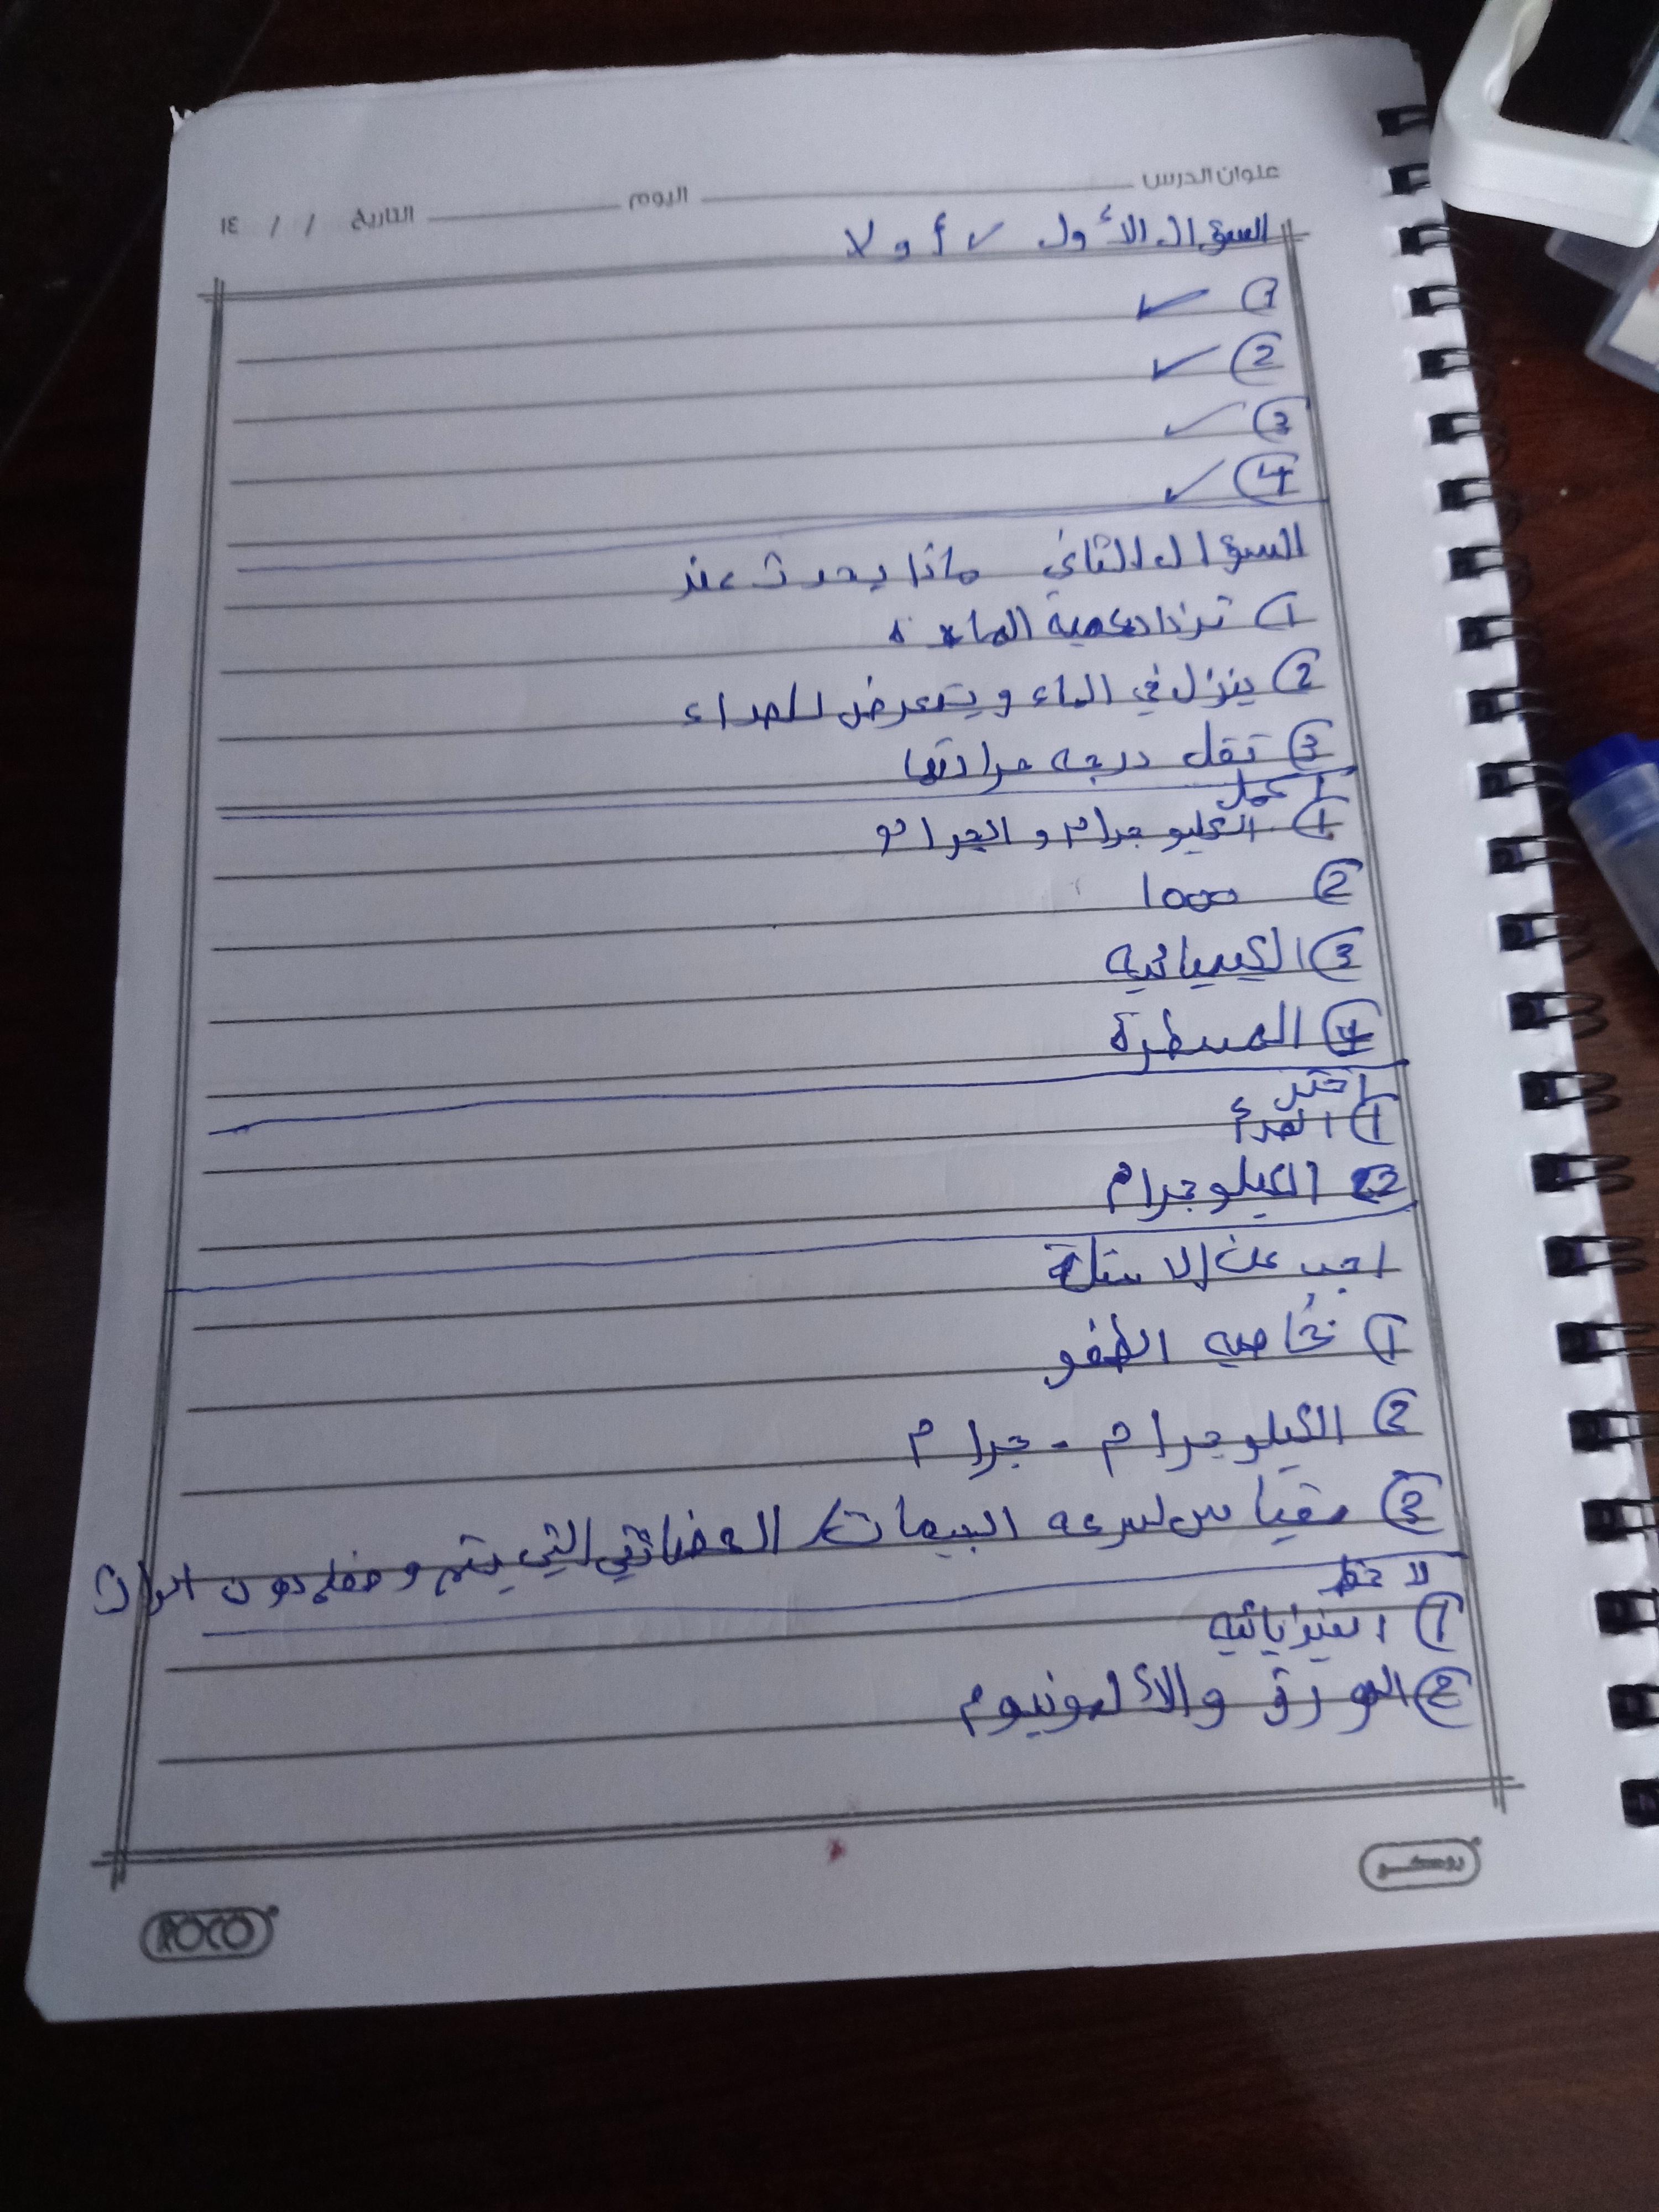 عنوان الدرس اليوم التاريخ / / ١٤
السؤال الأول ✓ أو لا
① ✓
② ✓
③ ✓
④ ✓
السؤال الثاني ماذا يحدث عند
① تزداد كمية الماء
② ينزل في الماء ويتعرض للصداء
③ تقل درجه حرارتها
اكمل
① الكيلو جرام و الجرام
② 1000
③ الكيميائيه
④ المسطرة
اختر
① الصدأ
② الكيلو جرام
اجب عن الاسئلة
① خاصيه الطفو
② الكيلو جرام - جرام
③ مقياس لسرعه التي يتم دون
لاحظ
① الفيزيائيه
② الورق والألمونيوم
روكو
ROCO